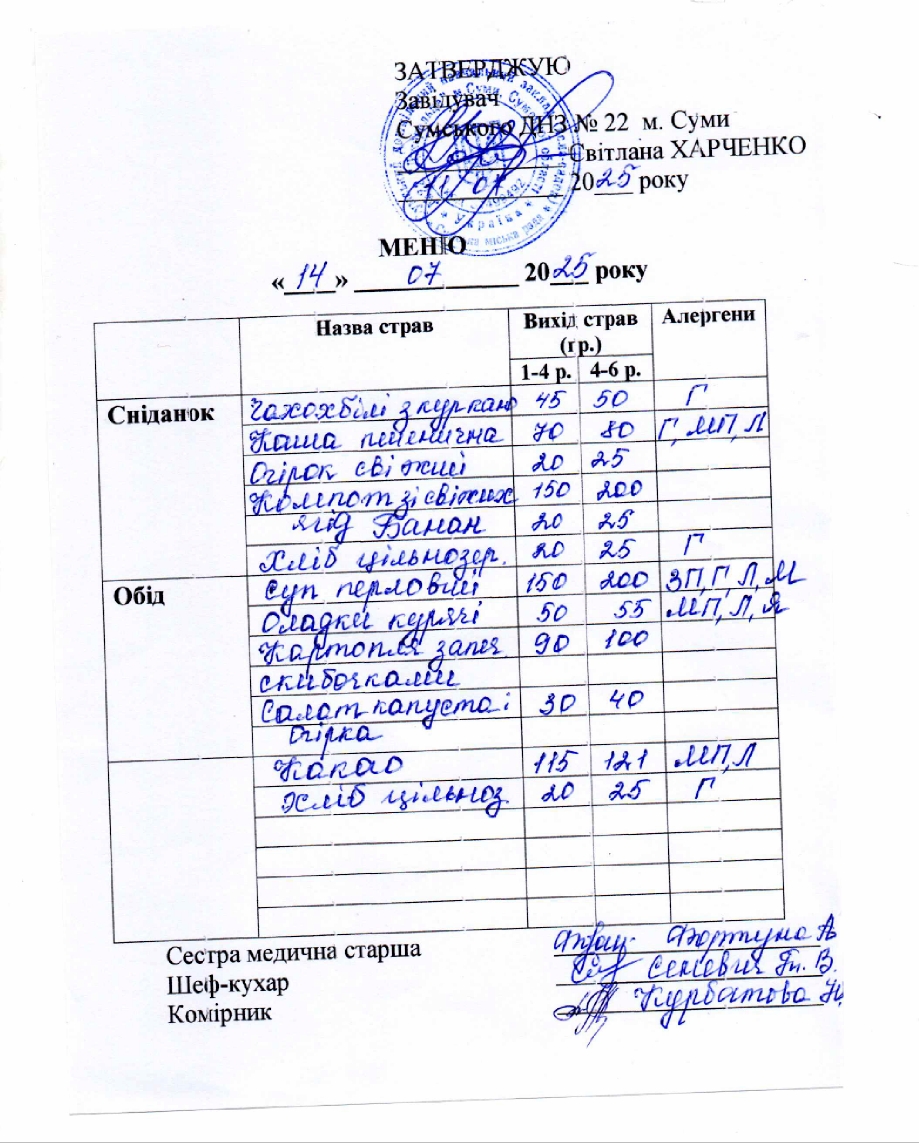 ЗАТВЕРДЖУЮ
Завідувач
Сумського ДНЗ № 22 м. Суми
Світлана ХАРЧЕНКО
11. 07 2025 року
МЕНЮ
«14» 07 2025 року
Назва страв Вихід страв (гр.) Алергени
1-4 р. 4-6 р.
Сніданок Чахохбілі з куркою 45 50 Г
Каша пшенична 70 80 Г, МП, Л
Огірок свіжий 20 25
Компот зі свіжих 150 200
ягід Банан 20 25
Хліб цільнозер. 20 25 Г
Обід Суп перловий 150 200 ЗП, Г Л, М
Оладки курячі 50 55 МП, Л, Я
Картопля запеч 90 100
скибочками
Салат капуста і 30 40
огірка
Какао 115 121 МП, Л
Хліб цільноз. 20 25 Г
Сестра медична старша Фортуна А
Шеф-кухар В.
Комірник Курбатова